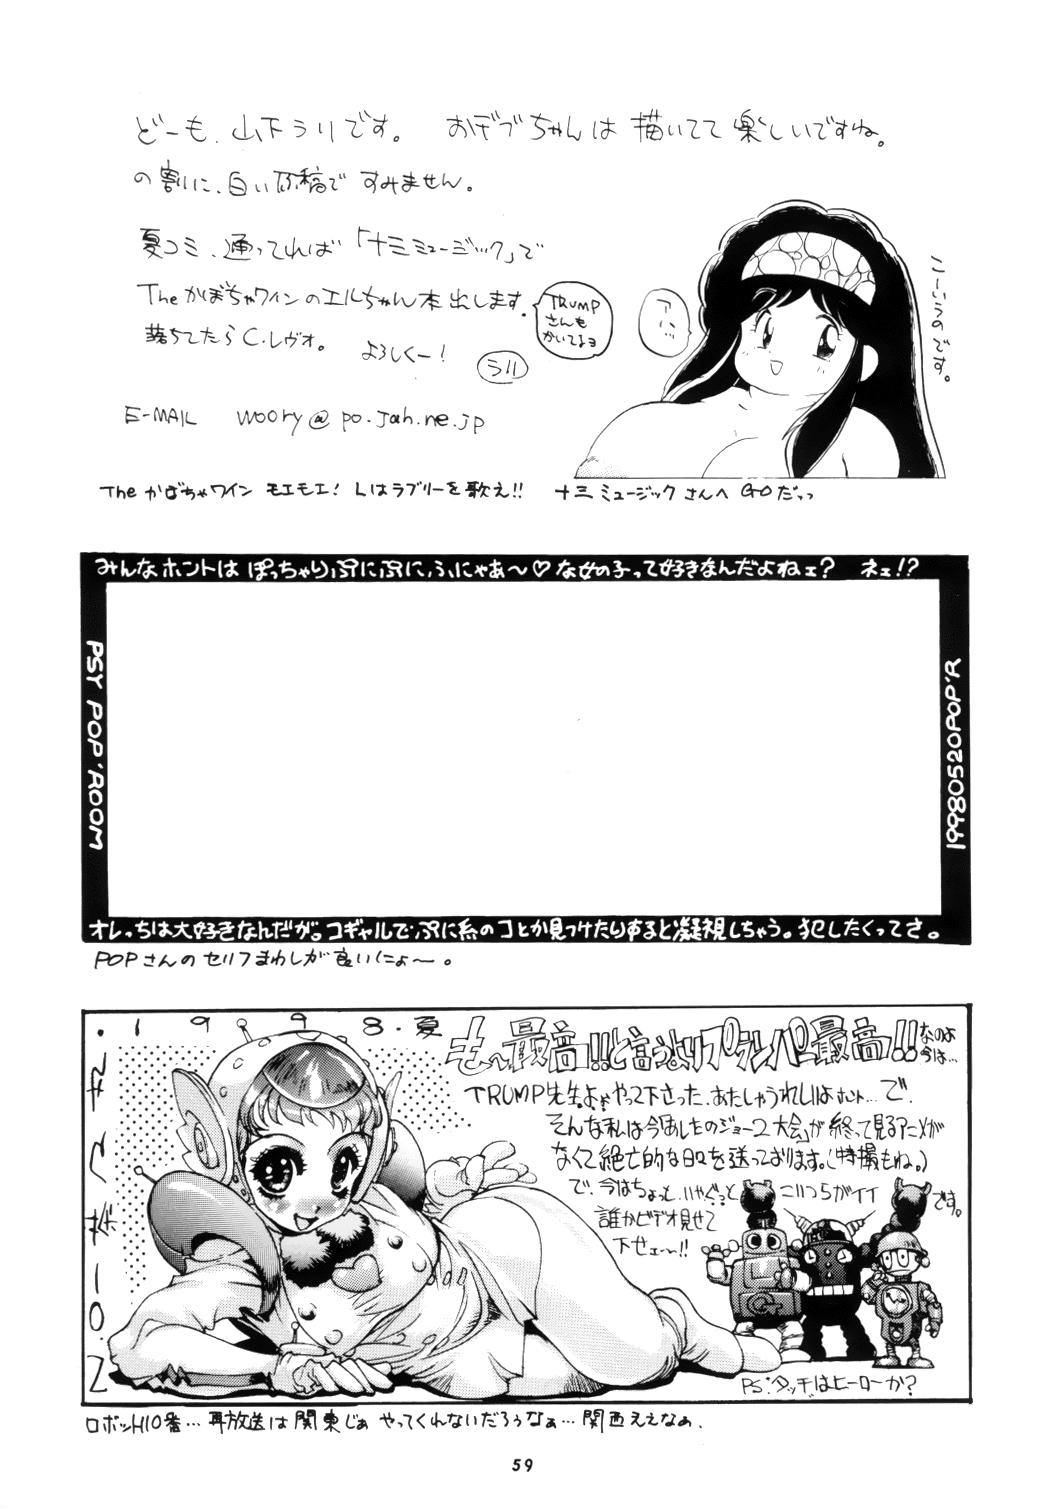 どーも、山下うりです。 おデブちゃんは描いてて楽しいですね。
の割に、白い原稿ですみません。
夏コミ、通ってれば「十三ミュージック」で
Theかぼちゃワインのエルちゃん本出します。
落ちてたらC.レヴォ。 よろしくー!
うり
TRUMP
さんも
かいてるヨ
アハハ
こーいうのです。
E-MAIL woory@po.jah.ne.jp
Theかぼちゃワイン モエモエ! Lはラブリーを歌え!! 十三ミュージックさんへGOだっっ
みんなホントは ぽっちゃりぷにぷにふにゃあ〜♡な女の子って好きなんだよねェ? ネェ!?
PSY POP'ROOM
19980520POP'R
オレっちは大好きなんだが。コギャルでぷに系のコとか見つけたりすると凝視しちゃう。犯したくってさ。
POPさんのセリフまわしが良いにょ〜。
1998.夏
も〜最高!!と言うよりプランパー最高!!
なのよ
今は…
TRUMP先生よォやって下さった、あたしゃうれしいよホント…で、
そんな私は今「あしたのジョー2大会」が終って見るアニメが
なくて絶亡的な日々を送っております。(特撮もね。)
で、今はちょっと、いやぐっと こいつらがイイ です。
誰かビデオ見せて
下せェ〜!!
PS:タッチはヒーローか?
ロボット110番…再放送は関東じゃやってくれないだろうなぁ…関西ええなぁ.
59